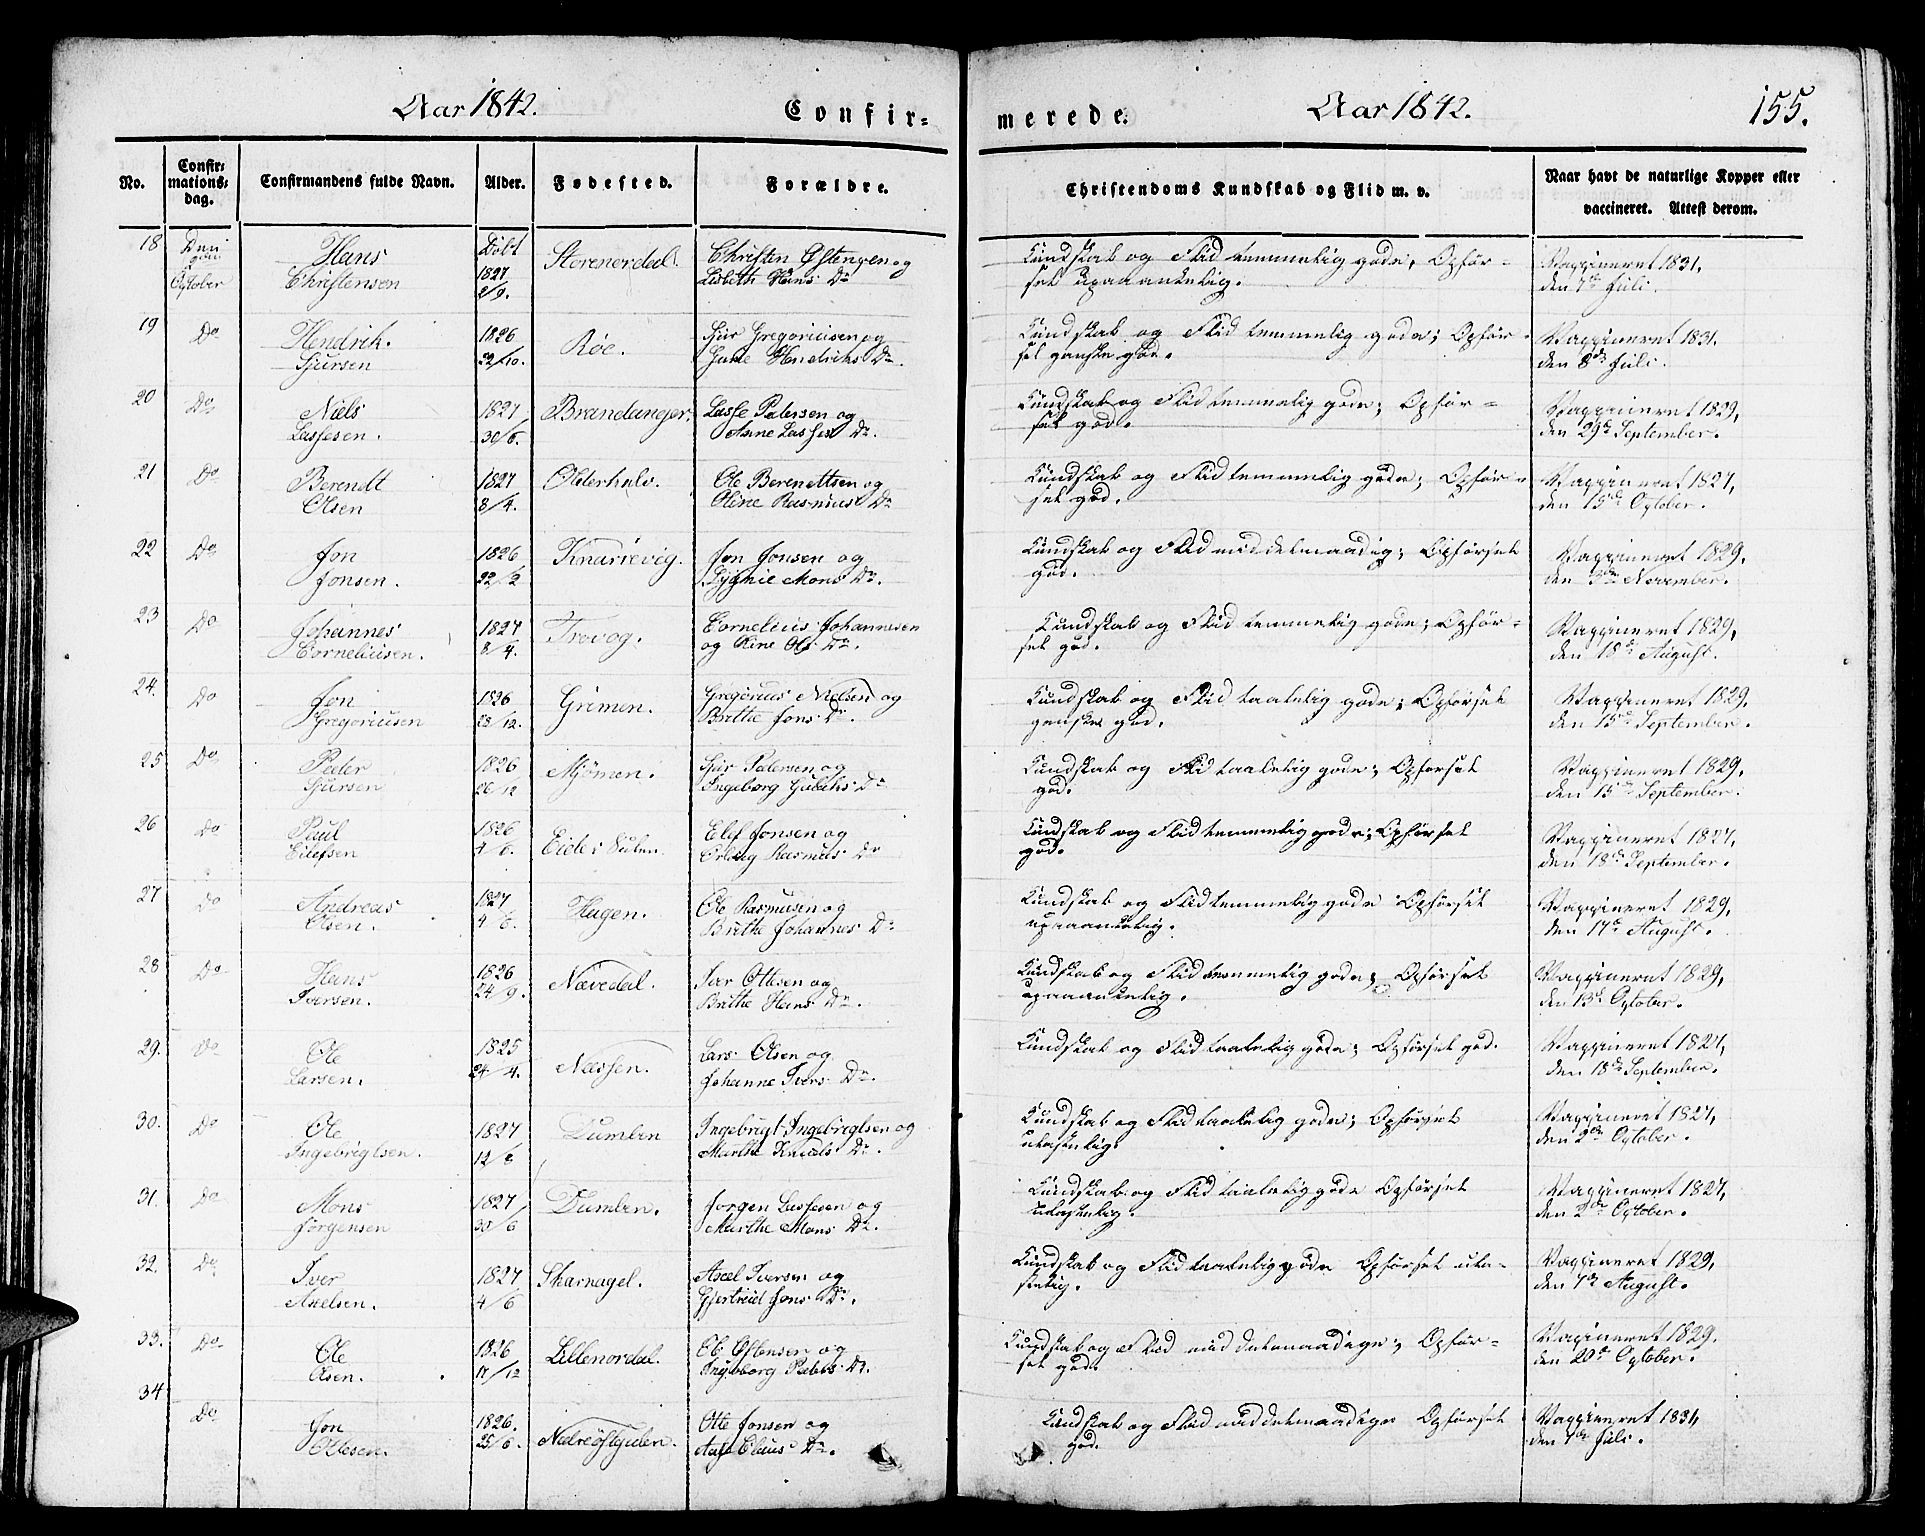 Aar 1842.
Confir-
merede.
Aar 1842.
155.
No.
Confir-
mations-
dag.
Confirmandens fulde Navn.
Alder.
Fødested.
Forældre.
Christendoms Kundskab og Flid m. v.
Naar havt de naturlige Kopper eller
vaccineret. Attest derom.
18 Den October Hans Christensen Døbt 1827 2/9. Sterenerdal. Christen Østensen og Lisbeth Hans Dr Kundskab og Flid temmelig gode, Opførsel upaaankelig. Vaccineret 1831, den 7de Juli.
19 Do Hendrik. Sjursen 1826 22/10. Røe. Sjur Gregoriusen og Hendriks Dr. Kundskab og Flid temmelig gode; Opførsel ganske god. Vaccineret 1831. den 8de Juli.
20 Do Niels Lassesen. 1827 30/6. Brandanger. Lasse Petersen og Anne Lasses Dr. Kundskab og Flid temmelig gode; Opførsel god. Vaccineret 1829, den 29de September.
21 Do Berendt Olsen 1827 8/4. Otterhals. Ole Berenttsen og Oline Rasmus Dr Kundskab og Flid temmelig gode; Opførsel god. Vaccineret 1827, den 15de October.
22 Do Jon Jonsen. 1826 22/2 Knarrevig. Jon Jonsen og Mons Dr. Kundskab og Flid middelmaadig; Opførsel god. Vaccineret 1829, den 3die November.
23 Do Johannes Corneliusen. 1827 8/4. Trovog. Cornelius Johannesen og Oline Ols Dr. Kundskab og Flid temmelig gode; Opførsel god. Vaccineret 1829, den 18de August.
24. Do Jon Gregoriusen 1826 23/12. Grimen. Gregorius Nielsen og Brithe Jons Dr. Kundskab og Flid taalelig gode; Opførsel ganske god. Vaccineret 1829, den 15de September.
25 Do Peder Sjursen 1826 26/12 Mjömen. Sjur Petersen og Ingeborg Dr Kundskab og Flid taalelig gode; Opførsel god. Vaccineret 1829, den 15de September.
26 Do Paul Eilefsen 1826 4/6. Eides Sulen. Elef Jonsen og Rasmus Dr Kundskab og Flid temmelig gode; Opførsel god. Vaccineret 1827, den 18de September.
27 Do Andreas Olsen. 1827 4/6. Hagen. Ole Rasmusen og Brithe Johannes Dr Kundskab og Flid temmelig gode Opførsel upaaankelig. Vaccineret 1829, den 17de August.
28 Do Hans Iversen. 1826 24/9. Nævedal. Iver Ottesen og Brithe Hans Dr. Kundskab og Flid temmelig gode; Opførsel upaaankelig. Vaccineret 1829, den 13de October.
29. Do Ole Larsen. 1825 24/4. Næssen. Lars Olsen og Johanne Ivers Dr. Kundskab og Flid taalelig gode; Opførsel god. Vaccineret 1827, den 18de September.
30. Do Ole Ingebrigtsen. 1827 12/8 Dumben Ingebrigt Ingebrigtsen og Marthe Knuds Dr. Kundskab og Flid taalelig gode; Opførsel ulastelig. Vaccineret 1827, den 2den October.
31. Do Mons Jörgensen 1827 30/6 Dumben. Jørgen Lassesen og Marthe Mons Dr. Kundskab og Flid taalelig gode Opførsel ulastelig. Vaccineret 1827, den 2den October.
32. Do Iver Axelsen. 1827 4/6 Skarnagel. Axel Iversen og Gjertrud Jons Dr. Kundskab og Flid taalelig gode Opførsel ulastelig. Vaccineret 1829, den 7de August.
33. Do Ole Olsen. 1826 17/12 Lillenordal. Ole Østensen og Ingeborg Peders Dr. Kundskab og Flid middelmaadige; Opførsel god. Vaccineret 1829. den 20de October.
34 Do Jon Ottesen. 1826. 25/6. Otte Jonsen og Claus Dr. Kundskab og Flid middelmaadige Opførsel god. Vaccineret 1831, den 7de Juli.